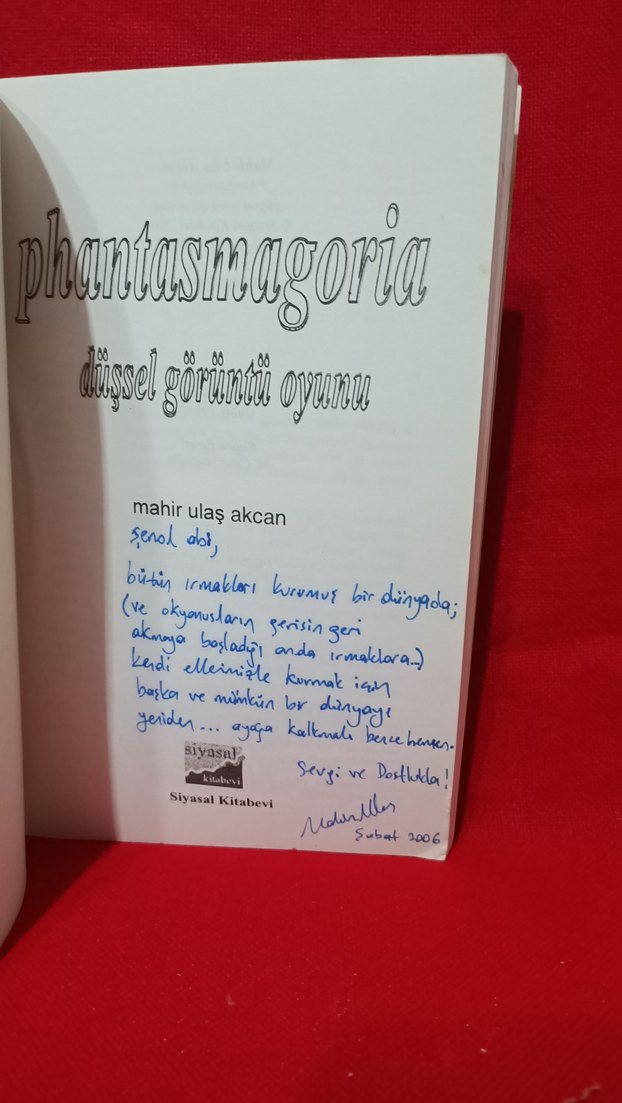 phantasmagoria
düşsel görüntü oyunu
mahir ulaş akcan
şenol abi,
bütün ırmakları kurumuş bir dünyada;
(ve okyanusların gerisin geri
akmaya başladığı anda ırmaklara...)
kendi ellerimizle kurmak için
başka ve mümkün bir dünyayı
yeniden... ayağa kalkmalı bence hemen.
Sevgi ve Dostlukla!
siyasal
kitabevi
Siyasal Kitabevi
Şubat 2006